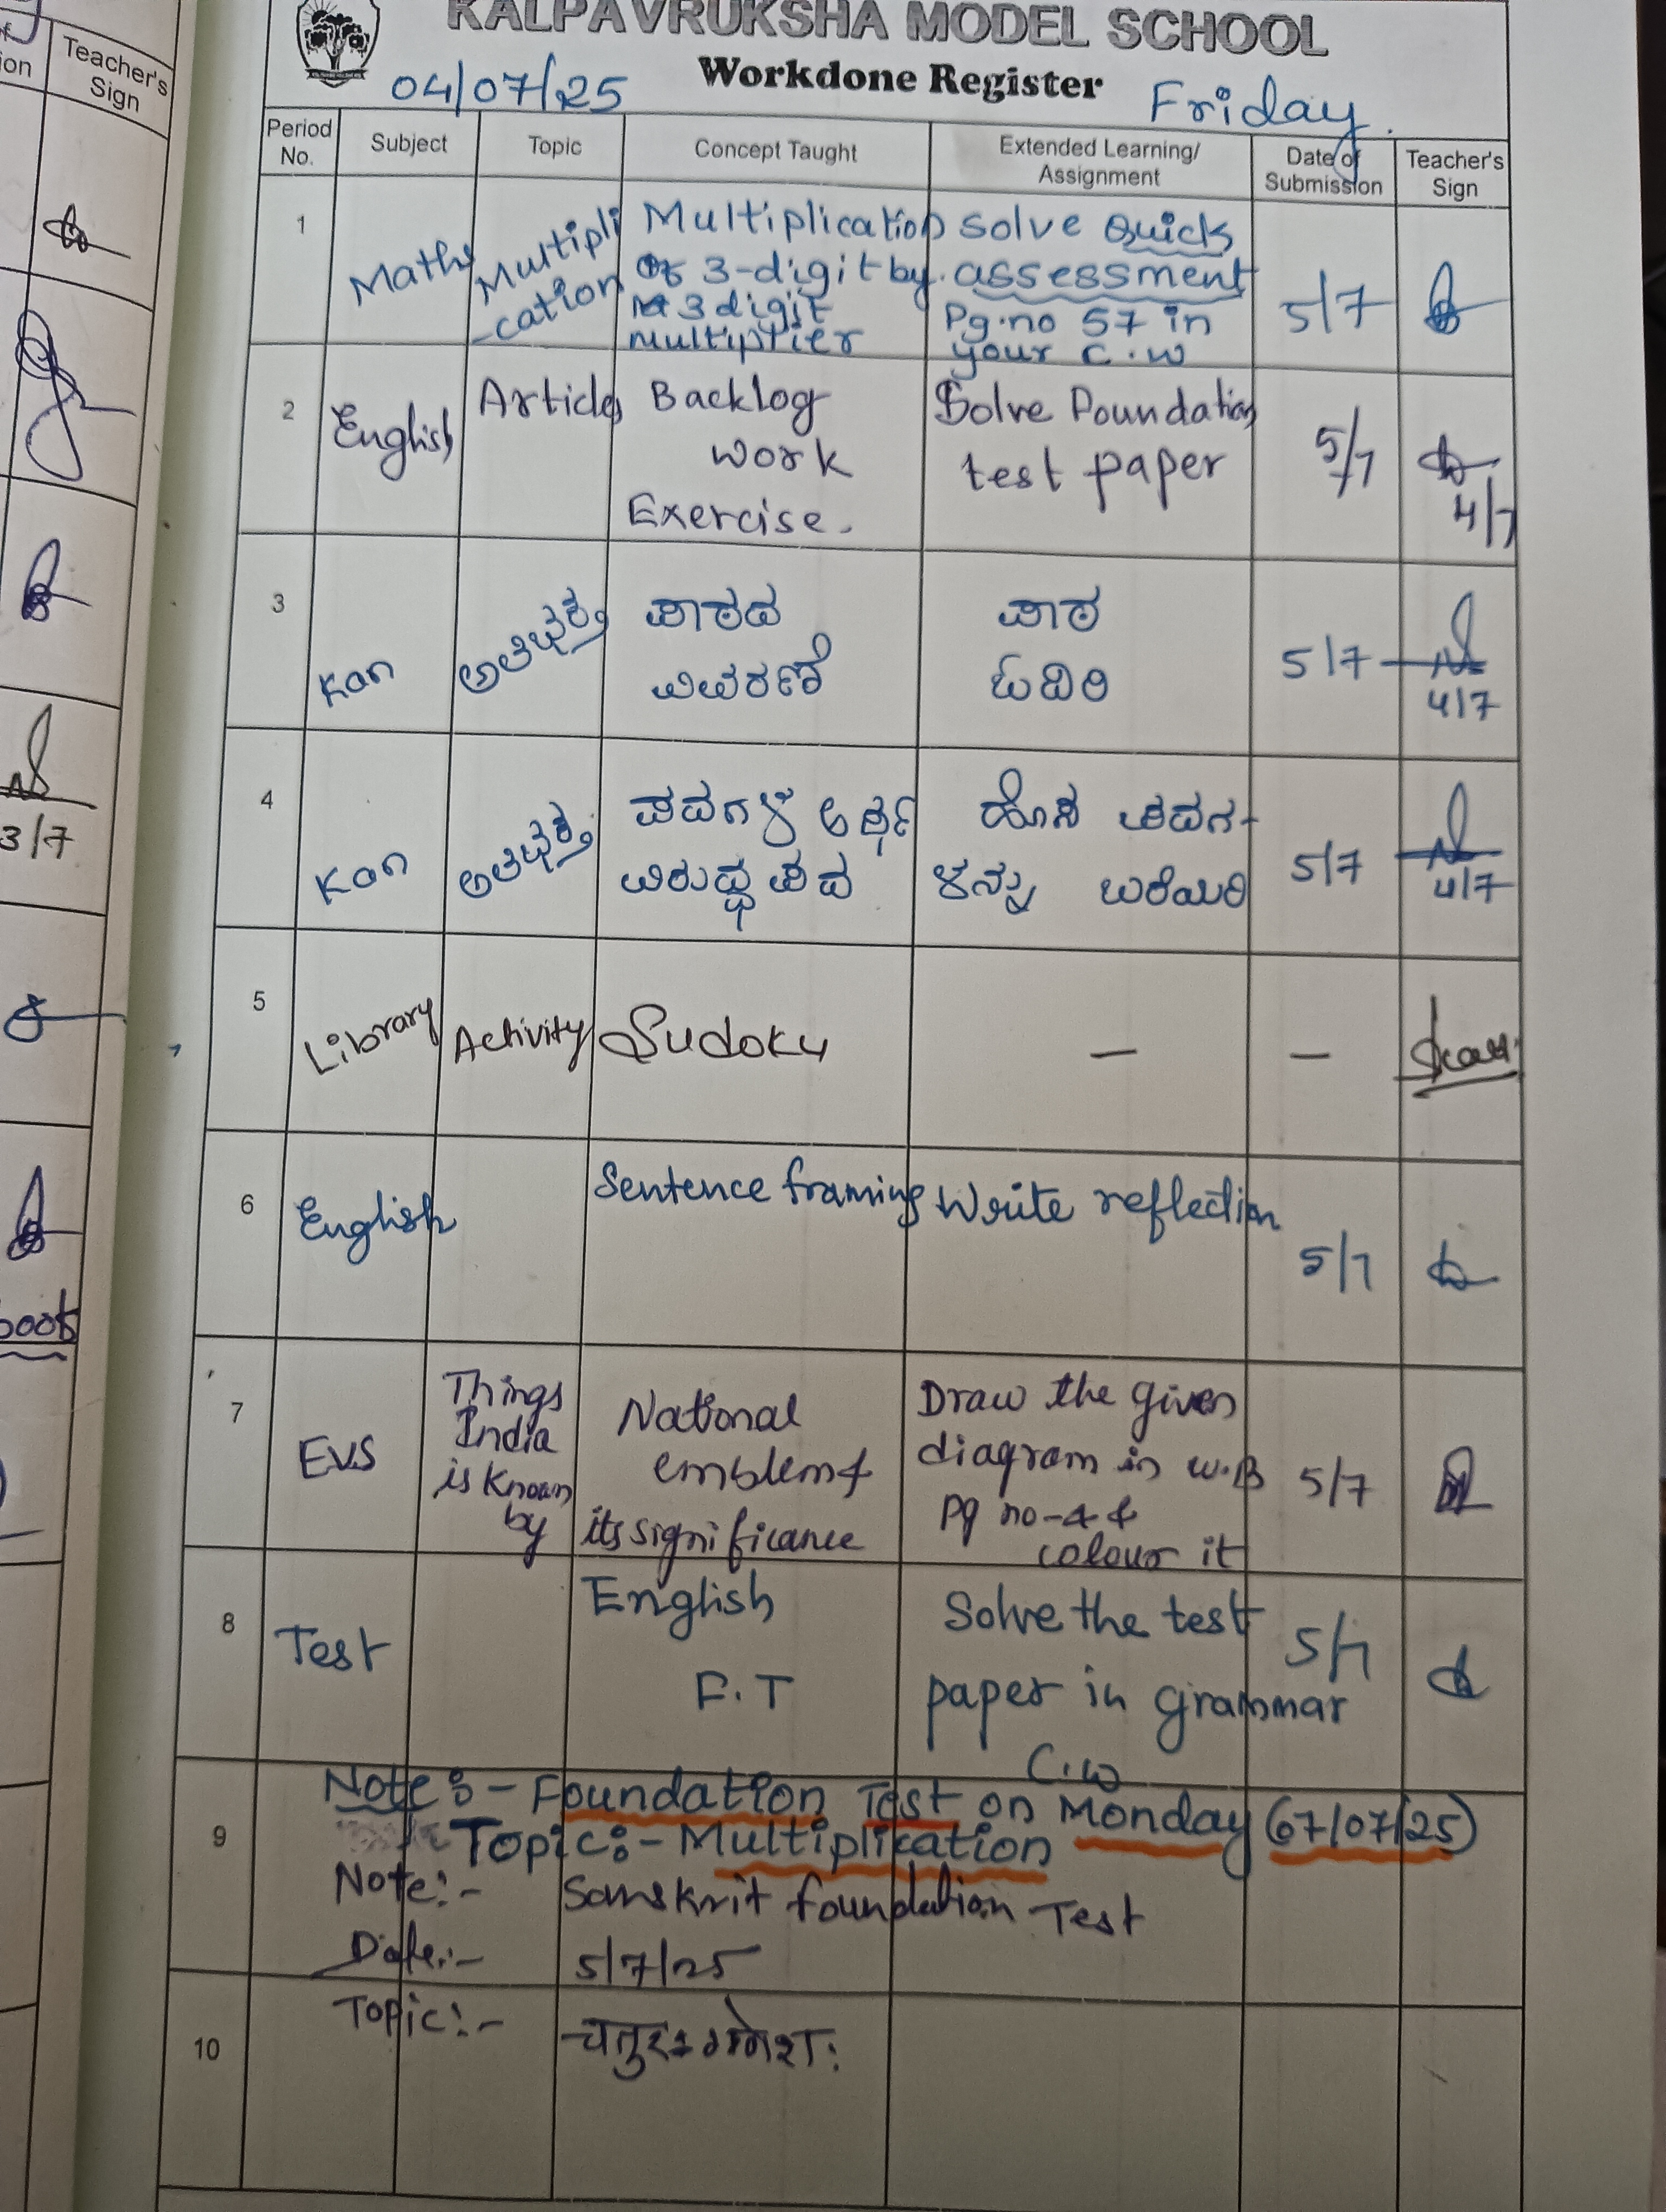 KALPAVRUKSHA MODEL SCHOOL
Workdone Register
04/07/25
Friday.
Teacher's
Sign
Period
No.
Subject
Topic
Concept Taught
Extended Learning/
Assignment
Date of
Submission
Teacher's
Sign
1
Maths
Multipli
-cation
Multiplication
of 3-digit by
3 digit
multiplier
solve Quick
assessment
Pg.no 57 in
your C.W
5/7
2
English
Articles
Backlog
work
Exercise.
Solve Foundation
test paper
5/7
4/7
3
Kan
ಪಾಠದ
ವಿವರಣೆ
ಪಾಠ
ಓದಿರಿ
5/7
4/7
4
Kan
ಪದಗಳ ಅರ್ಥ
ವಿರುದ್ಧ ಪದ
ಹೊಸ ಪದಗ-
ಳನ್ನು ಬರೆಯಿರಿ
5/7
4/7
3/7
5
Library
Activity
Sudoku
—
—
6
English
Sentence framing
Write reflection
5/7
7
EVS
Things
India
is known
by
National
emblem &
its significance
Draw the given
diagram in W.B
Pg no-4 &
colour it
5/7
8
Test
English
F.T
Solve the test
paper in grammar
C.W
5/7
9
Note:- Foundation Test on Monday (07/07/25)
Topic:- Multiplication
Note:- Sanskrit foundation Test
Date:- 5/7/25
10
Topic:-